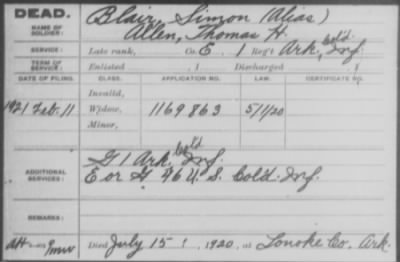 DEAD.
NAME OF SOLDIER:
Blair, Simon (Alias)
Allen, Thomas H.
SERVICE:
Late rank, Co. E. 1 Reg't Ark. Cold. Inf.
TERM OF SERVICE:
Enlisted , 1 Discharged , 1
DATE OF FILING. CLASS. APPLICATION NO. LAW. CERTIFICATE NO.
Invalid,
1921 Feb. 11 Widow, 1169863 5/1/20
Minor,
ADDITIONAL SERVICES:
G 1 Ark. Cold Inf.
E or H 46 U. S. Cold. Inf.
REMARKS:
Died July 15, 1920, at Lonoke Co. Ark.